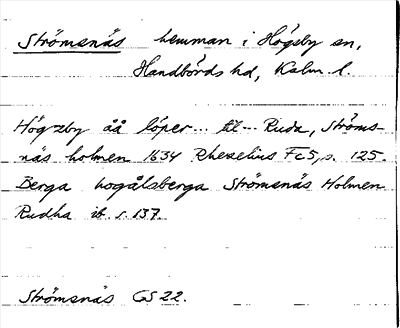 Strömsnäs hemman i Högsby sn,
Handbörds hd, Kalm. l.
Högzby åå löper... til... Ruda, Ströms-
näs holmen 1634 Rhezelius Fc5, s. 125.
Berga hogålsberga Strömsnäs Holmen
Rudha ib. s. 137.
Strömsnäs GS 22.